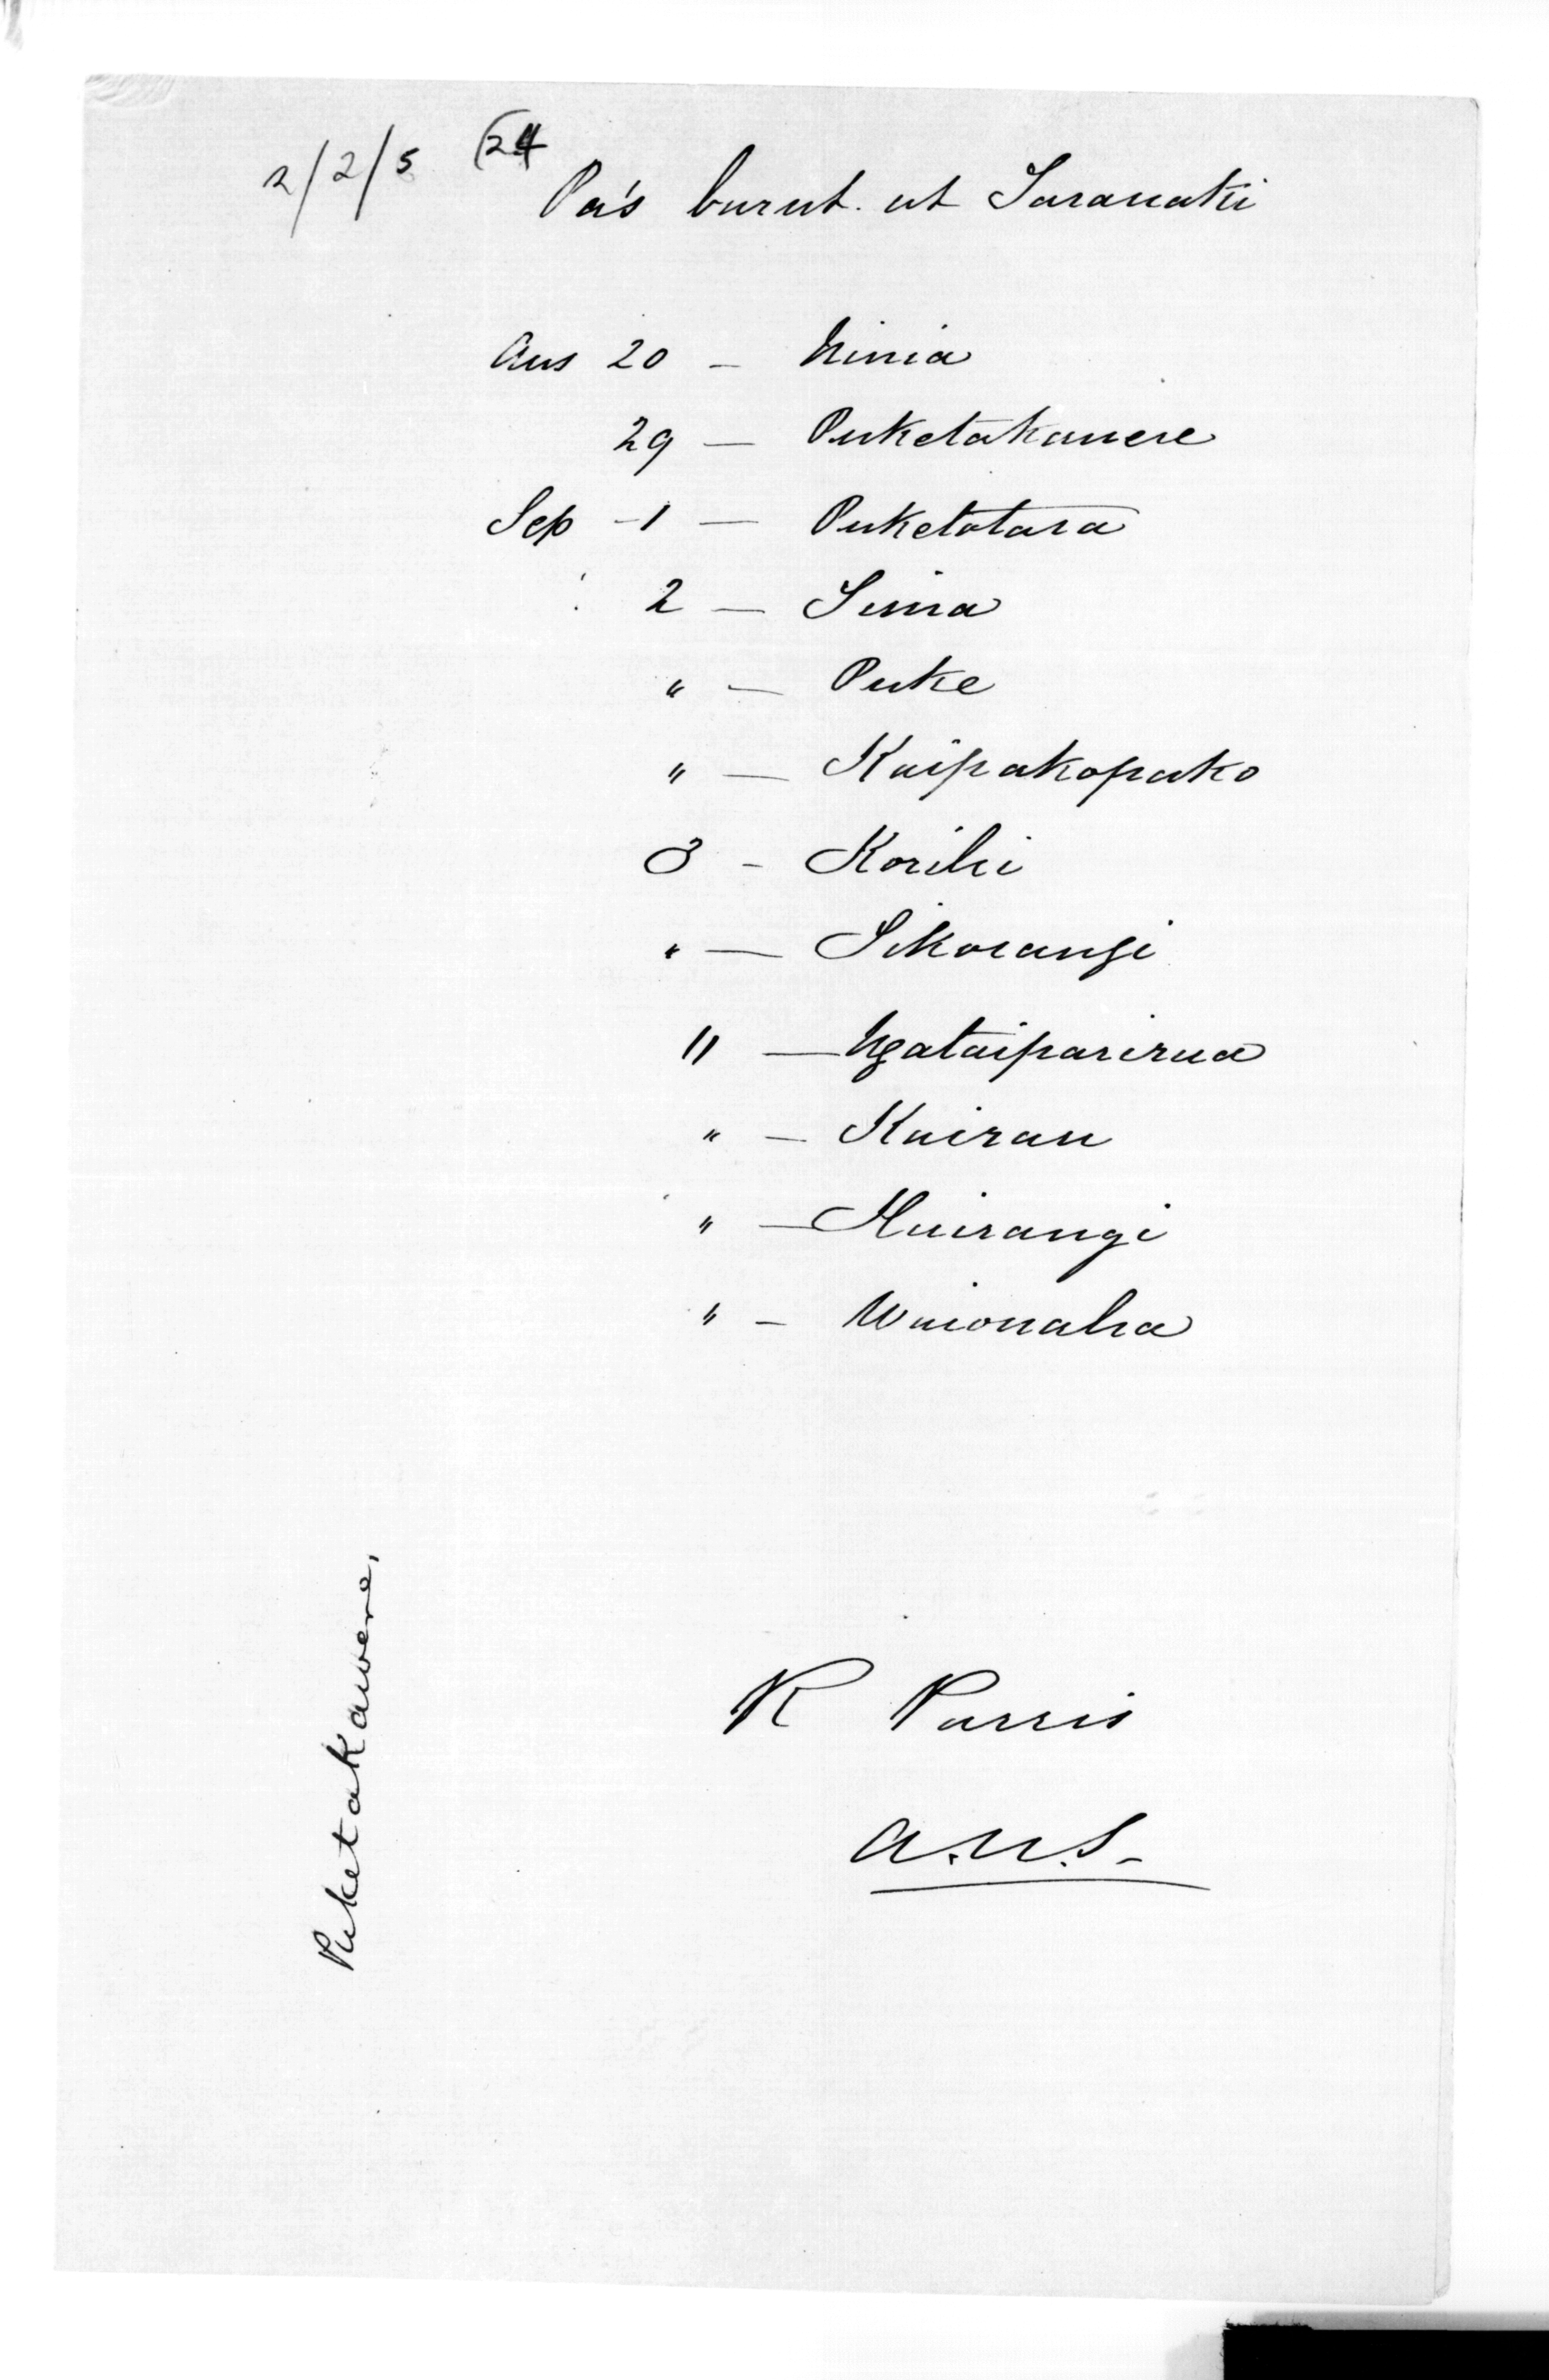 2/2/5 (24
Pa's burnt at Taranaki
Aug 20 — Ninia
29 — Puketakauere
Sep -1 — Puketotara
2 — Tima
" — Puke
" — Kaipakopako
3 - Korihi
" — Tikorangi
11 — Ngataiparirua
" — Kairau
" — Huirangi
" — Waionaha
R Parris
A.N.S.
Puketakawere,